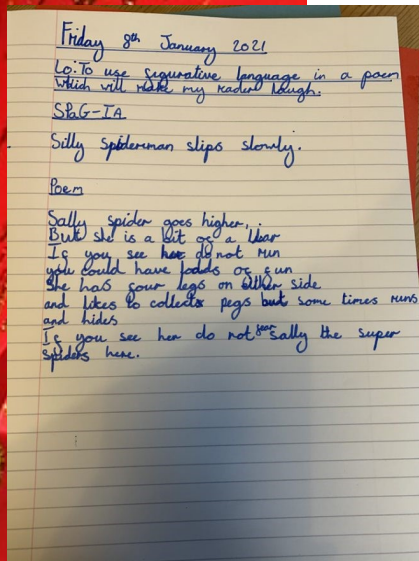 Friday 8th January 2021
Lo: To use figurative language in a poem
which will make my reader laugh.
SPaG-IA
Silly spiderman slips slowly.
Poem
Sally spider goes higher,
But she is a bit of a liar
If you see her do not run
you could have lodds of fun
She has four legs on either side
and likes to collects pegs but some times runs
and hides
If you see her do not fear sally the super
spiders here.